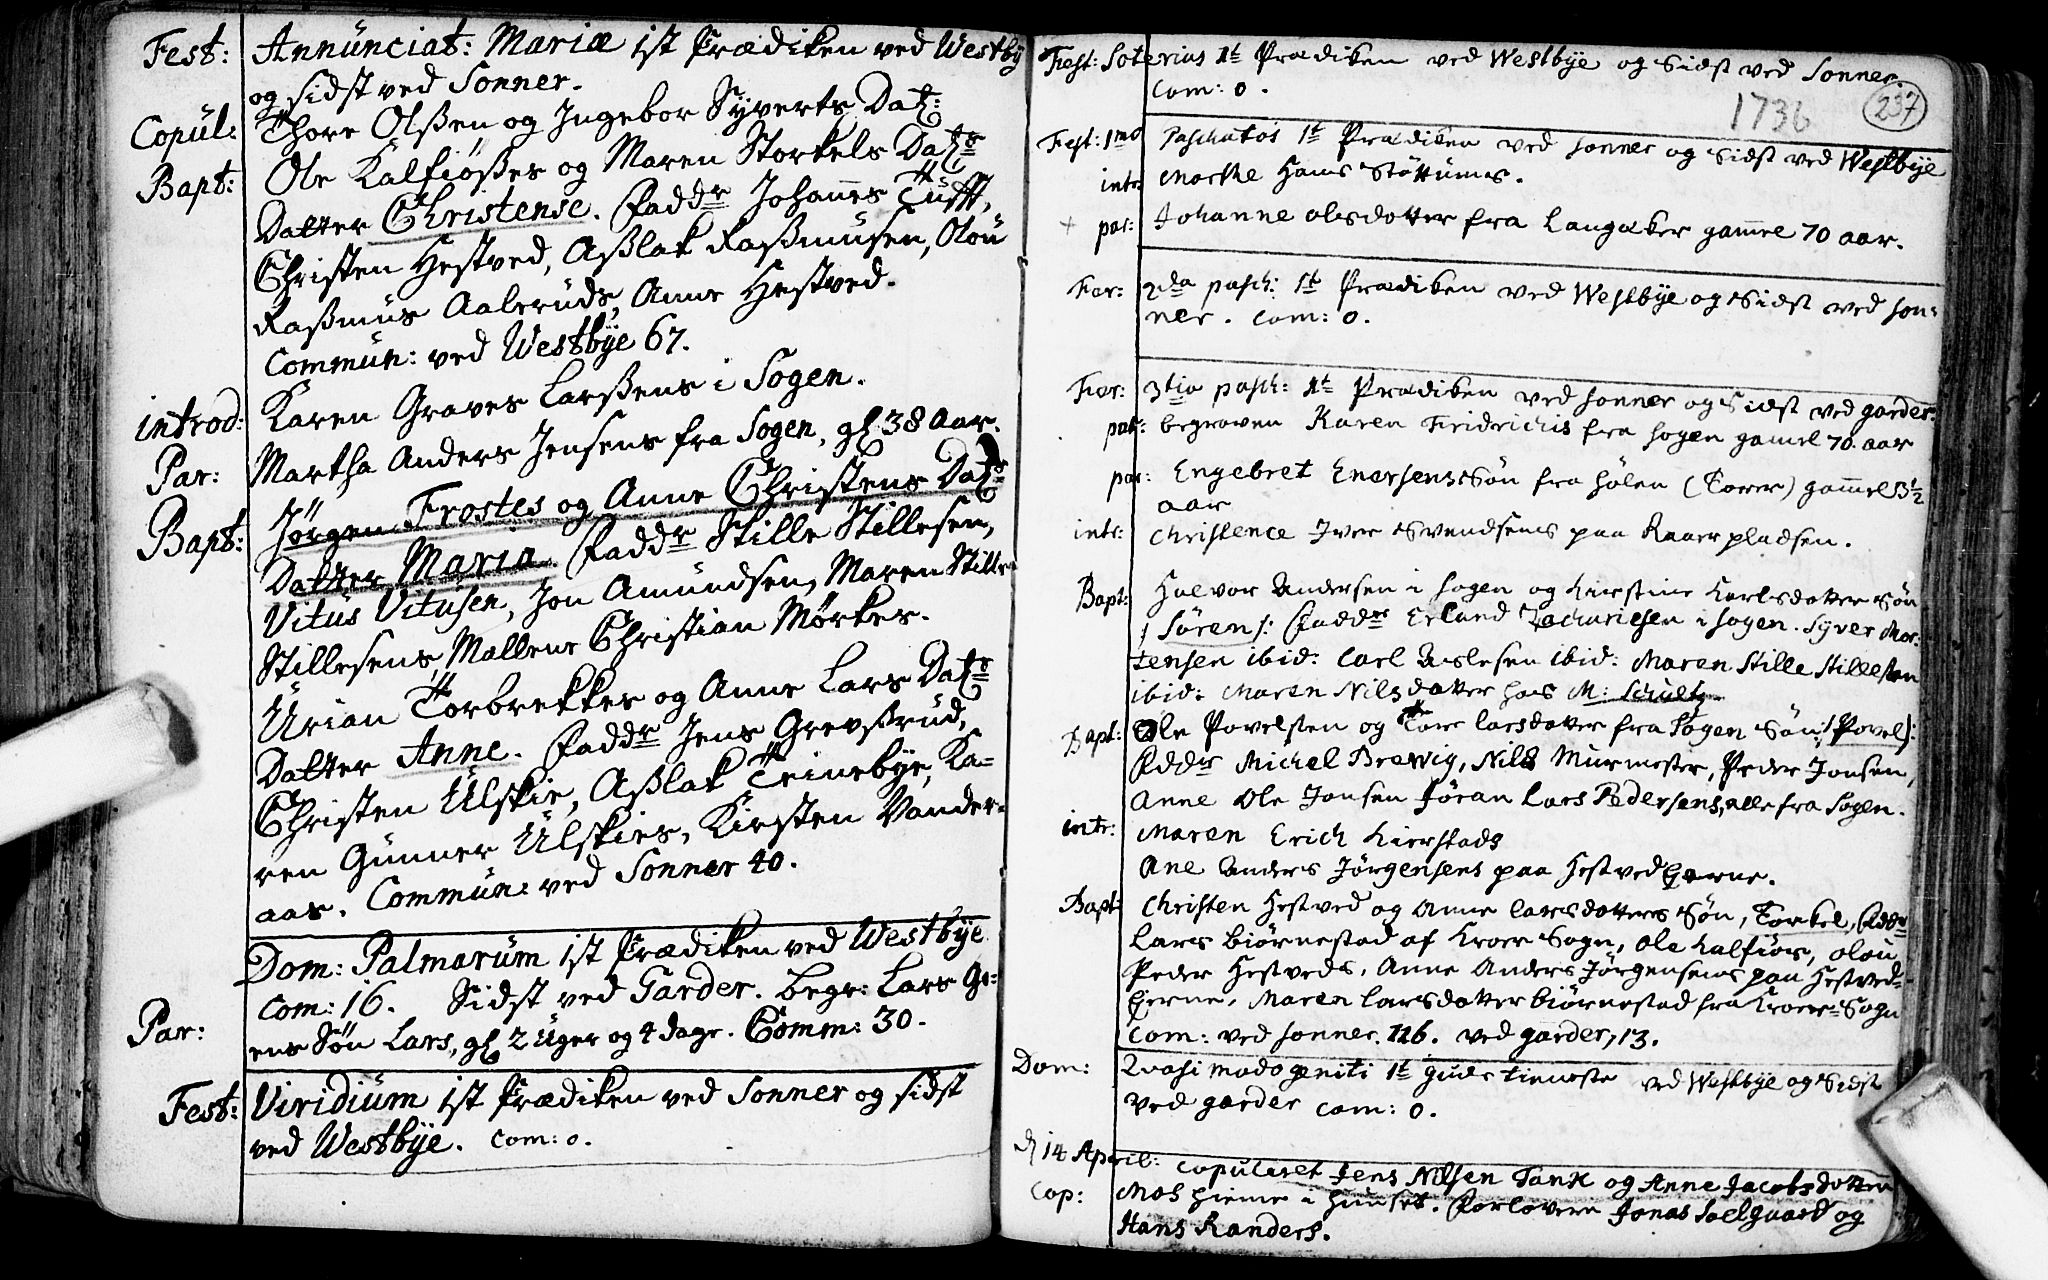 Fest: Annunciat: Mariæ 1st Prædiken ved Westby
og sidst ved Sonner.
Copul: Thore Olßen og Ingebor Syverts Dat:
Bapt: Ole Kalfiößes og Maren Storkels Datr
Datter Christense. Faddr Johannes Tufft,
Christen Hestved, Aßlak Raßmusen, Olou
Raßmus Aaleruds, Anne Hestved.
Commun: ved Westbÿe 67.
introd: Karen Graves Larßens i Sogen.
Par: Martha Anders Jensens fra Sogen, gl 38 Aar.
Bapt: Jörgen Frostes og Anne Christens Datr
Datter Maria. Faddr Stille Stillesen,
Vitus Vitusen, Jon Amundsen, Maren Stille
Stillesens, Mallene Christian Mörkes.
Urian Torbrekkes og Anne Lars Datr
Datter Anne. Faddr Jens Grevßrud,
Christen Ulskie, Aßlak Teinebÿe, Ka-
ren Gunner Ulskies, Kirsten Vander-
aas. Commun: ved Sonner 40.
Dom: Palmarum 1st Prædiken ved Westbÿe
Com: 16. Sidst ved Garder. begr: Lars Ge-
Par: ens Sön Lars, gl 2 Uger og 4 dage. Comm: 30.
Fest: Viridium 1st Prædiken ved Sonner og sidst
ved Westbÿe. Com: 0.
Fest: Soterius 1t Prædiken ved Westbÿe og Sidst ved Sonner
Com: 0.
1736 237
Fest: 1mo Paschatos 1t Prædiken ved sonner og Sidst ved Westbÿe
intr: Marthe Hans Stöttums.
par: Johanne olesdotter fra Langaker gammel 70 aar.
Fer: 2da pasch: 1t Prædiken ved Westbÿe og Sidst ved son-
ner. Com: 0.
Fer: 3tia pasch: 1t Prædiken ved sonner og Sidst ved garder.
par: begraven Karen Fridrichis fra sogen gamel 70. aar
par: Engebret Enersens Sön fra hölen (Torer) gammel 3½
aar
intr: Christence Iver Svendsens paa Raaer pladsen.
Bapt: Halvor Andersen i sogen og Kirstine Karlsdatter Sön
/ Sören /: Faddr Erland Zachariesen i sogen. Syver Mor-
tensen ibid: Carl Aslesen ibid: Maren Stille Stillesen
ibid: Maren Nilsdatter hos M: Schultz
Bapt: Ole Povelsten og Tore larsdatter fra Sogen Sön /:Povel/:
Faddr Michel Brewig, Nils Murmester, Peder Jonsen,
Anne Ole Jonsen Jöran Lars Pedersens, alle fra Sogen.
intr: Maren Erich Kierstads
Ane Anders Jörgensens paa Hestvedeierne.
Bapt Christen Hestved og Anne larsdatters Sön, Torkel, Faddr
Lars biörnestad af Kroer Sogn, Ole Kalfiös, olou
Peder Hestveds, Anne Anders Jörgensens paa Hestved-
eierne, Maren larsdatter biörnestad fra Kroer-Sogn
Com: ved sonner. 126. ved garder, 13.
Dom: Qvasimodogeniti 1t gudstieneste ved Westbÿe og Sidst
ved garder Com: 0.
d 14 April: copuleret Jens Nilsen Tank og Anne Jacobsdatter
Cop: Mos hieme i huuset. Forlovere Jonas Solgaard og
Hans Randers.